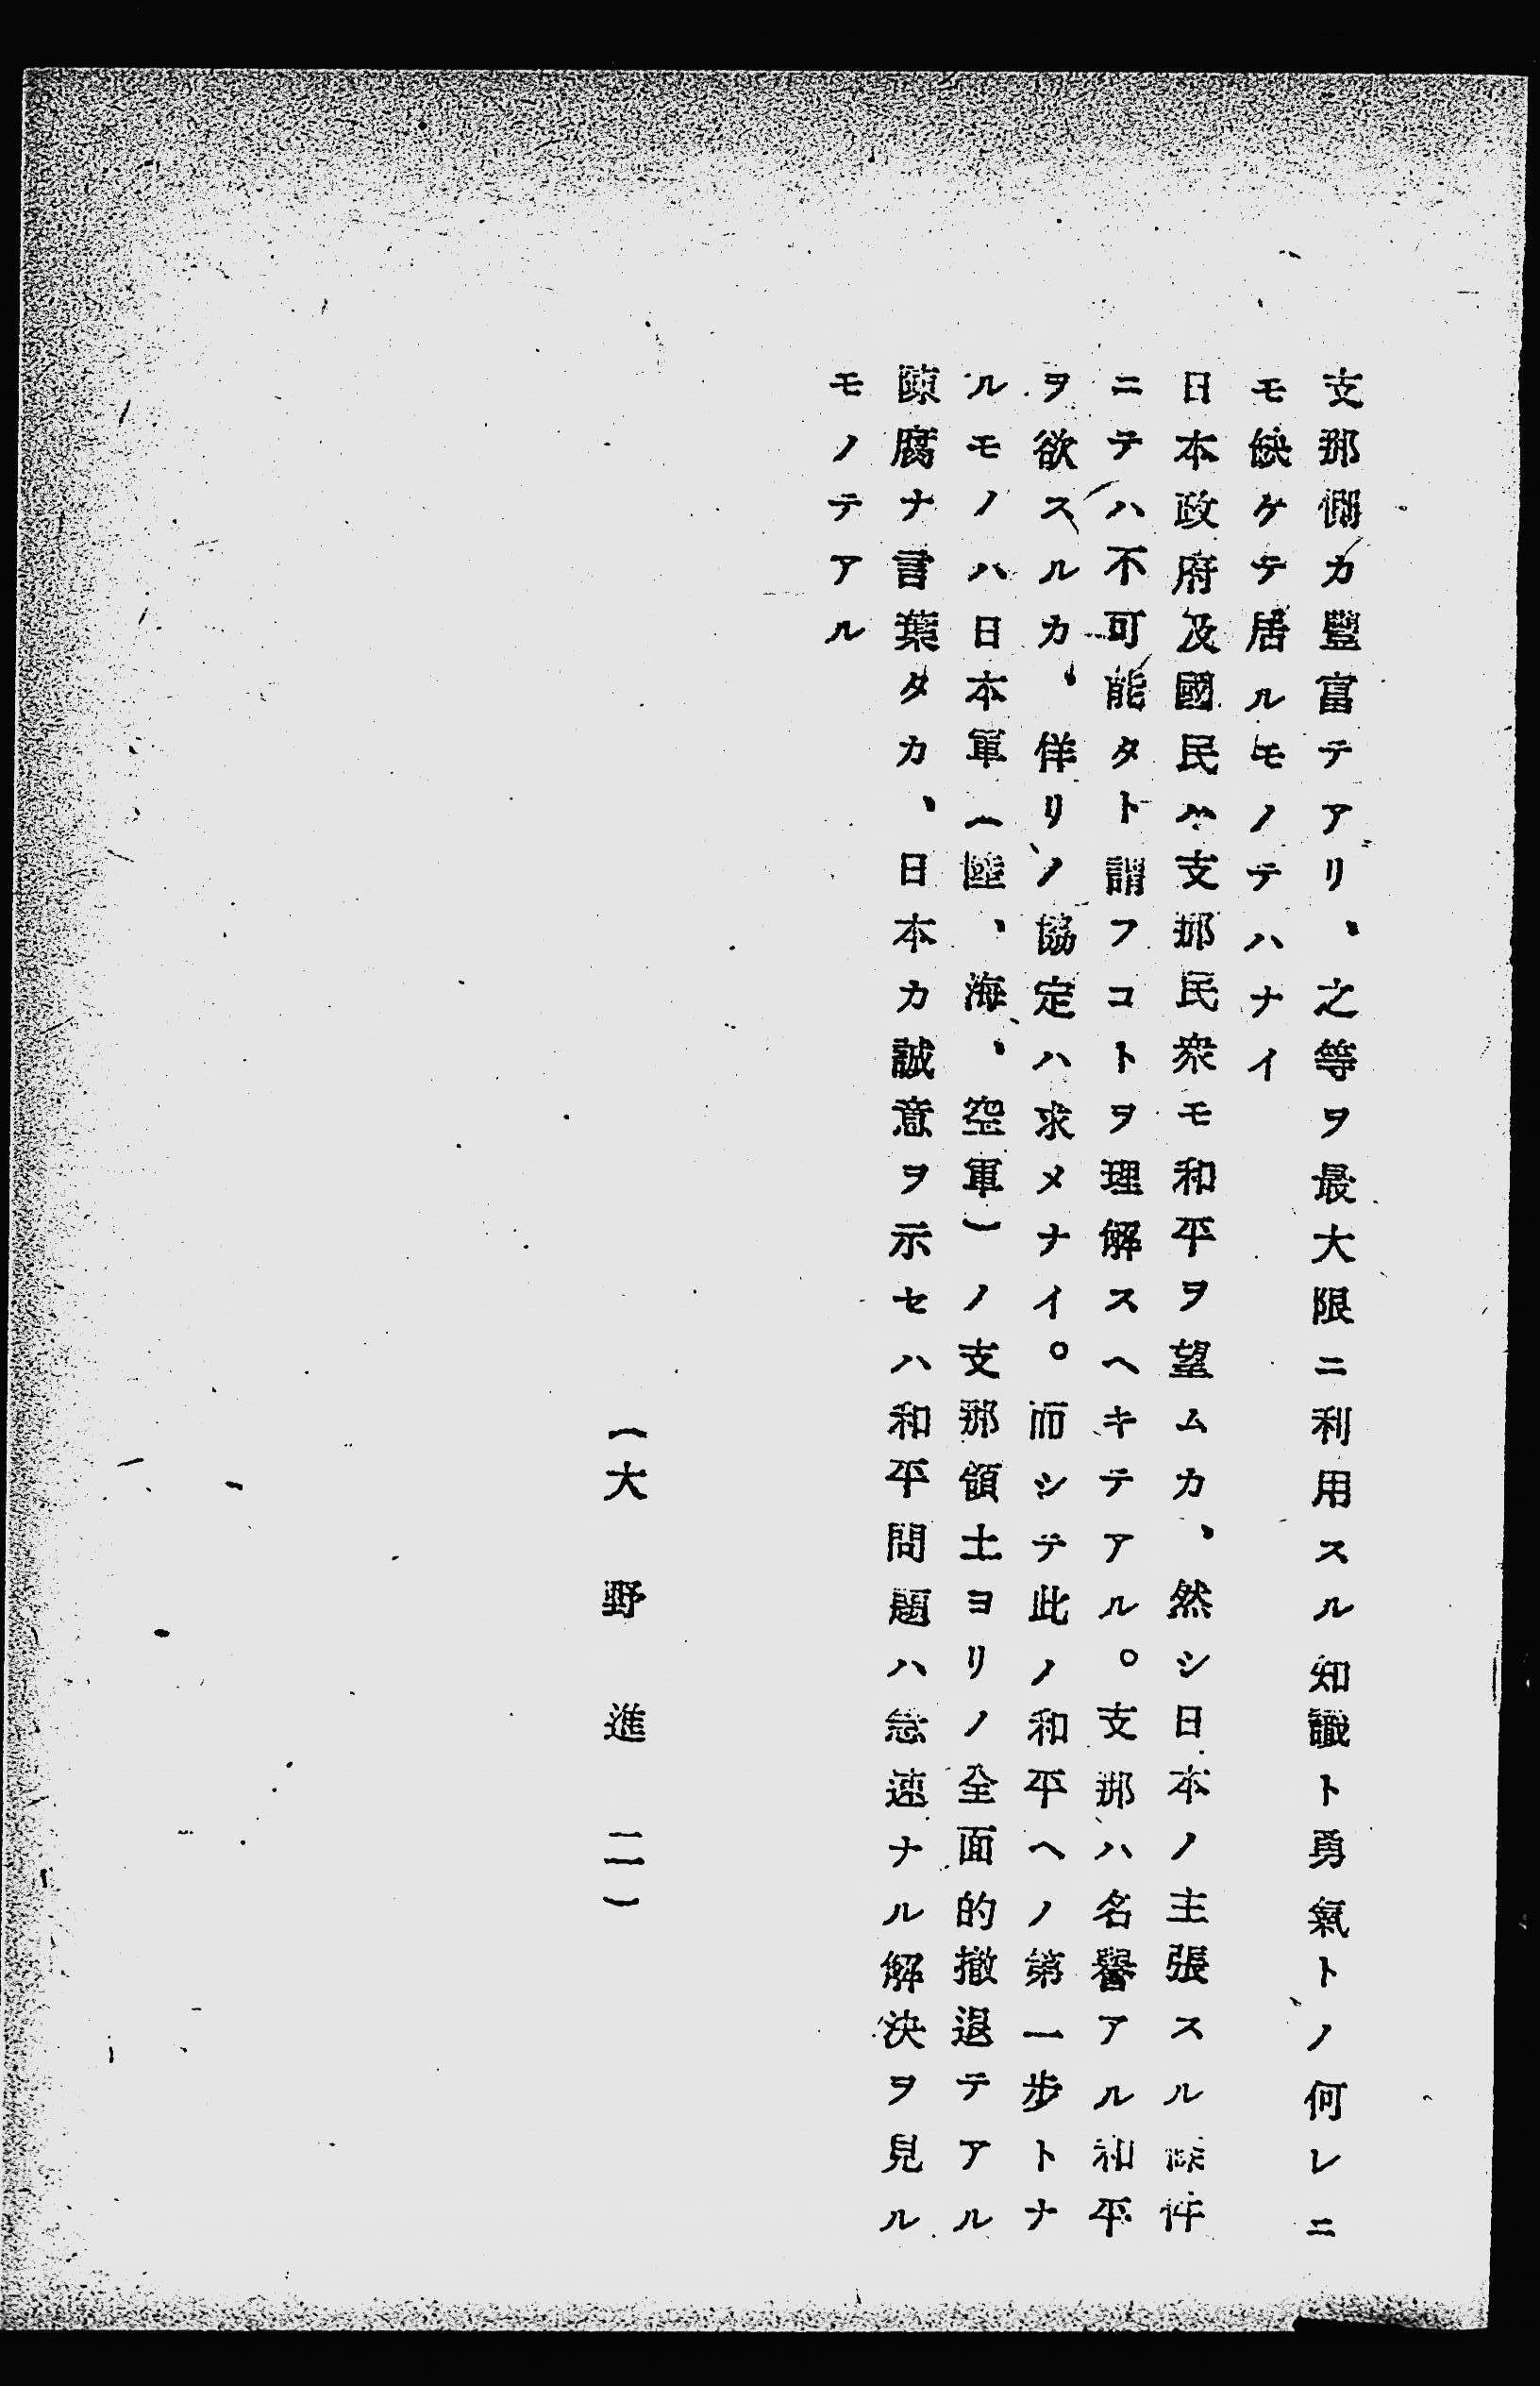 支那側カ豐富テアリ、之等ヲ最大限ニ利用スル知識ト勇氣トノ何レニ
モ缺ケテ居ルモノテハナイ
日本政府及國民ハ支那民衆モ和平ヲ望ムカ、然シ日本ノ主張スル條件
ニテハ不可能タト謂フコトヲ理解スヘキテアル。支那ハ名譽アル和平
ヲ欲スルカ、佯リノ協定ハ求メナイ。而シテ此ノ和平ヘノ第一步トナ
ルモノハ日本軍(陸、海、空軍)ノ支那領土ヨリノ全面的撤退テアル
陳腐ナ言葉タカ、日本カ誠意ヲ示セハ和平問題ハ急速ナル解決ヲ見ル
モノテアル
(大野進二)